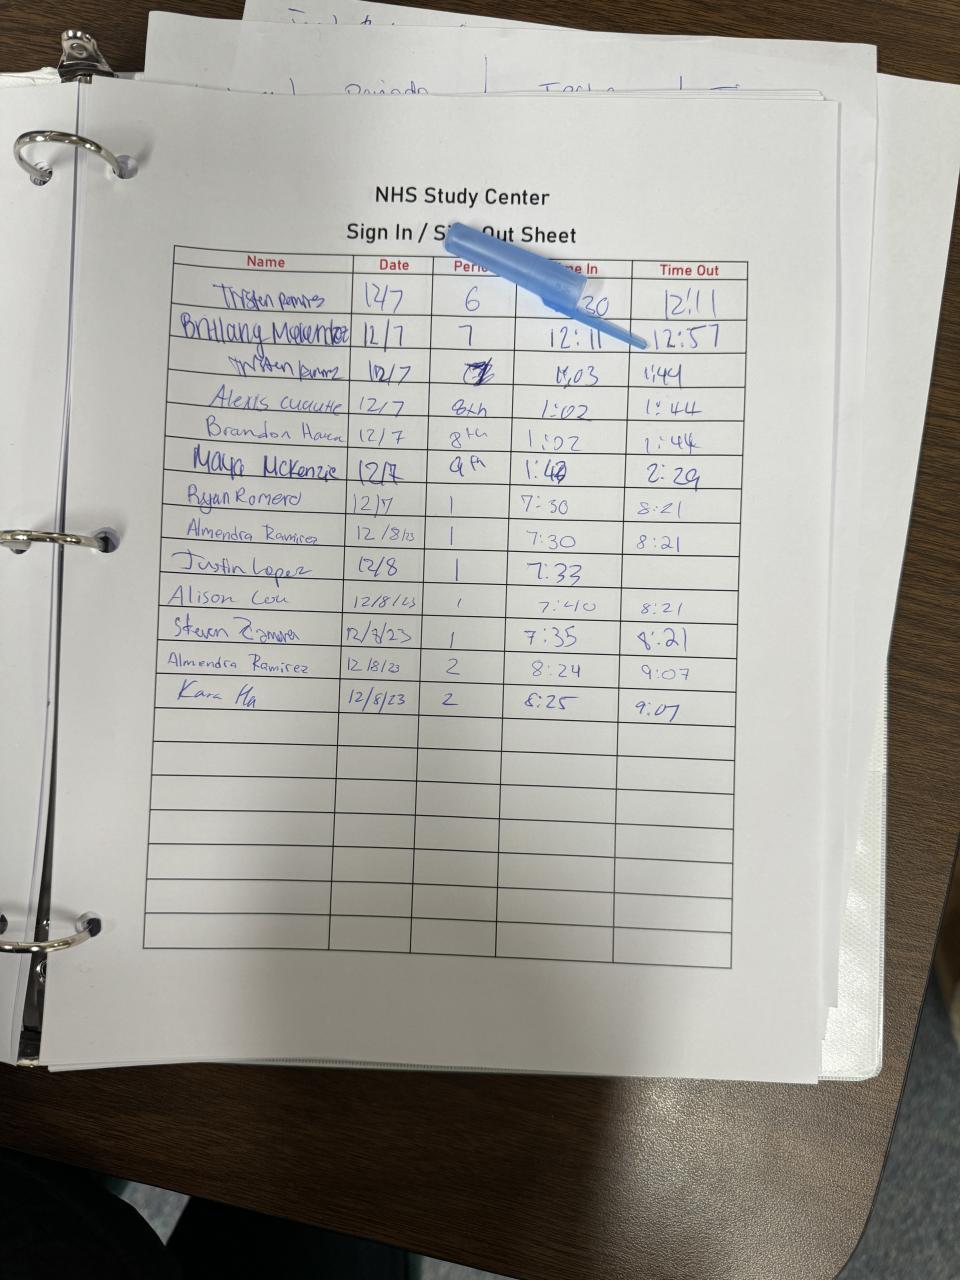 Periods
NHS Study Center
Sign In / Out Sheet
Name Date Time Out
Tristen 12/7 6 12:11
12/7 7 12:11 12:57
Tristen 12/7 1:03 1:44
Alexis cuautle 12/7 8th 1:02 1:44
Brandon 12/7 8th 1:02 1:44
Maya McKenzie 12/7 9th 2:29
Ryan Romero 12/7 1 7:30 8:21
Almendra Ramirez 12/8/23 1 7:30 8:21
Justin Lopez 12/8 1 7:33
Alison 12/8/23 1 7:40 8:21
Steven Zamora 1 7:35 8:21
Almendra Ramirez 12/8/23 2 8:24 9:07
Kara Ha 12/8/23 2 8:25 9:07